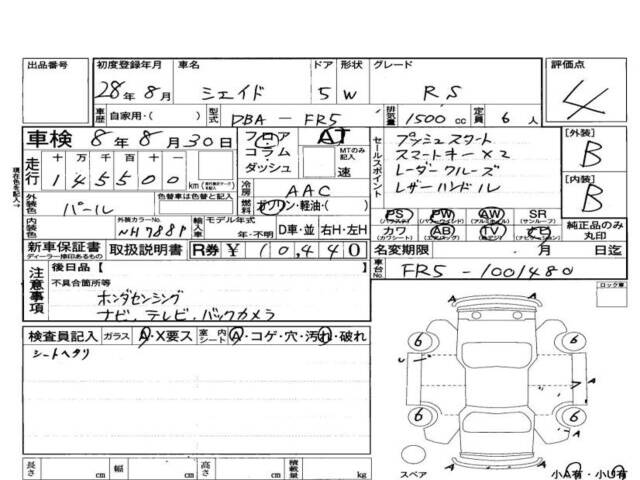 出品番号 初度登録年月 車名 ドア 形状 グレード 評価点
28年8月 シェイド 5 W RS 4
車歴 自家用・( ) 型式 DBA-FR5 排気量 1500cc 定員 6人
車検 8年8月30日 フロア AT セールスポイント プッシュスタート [外装]
コラム MTのみ記入 スマートキー×2 B
ダッシュ 速 レーダークルーズ [内装]
走行 十 万 千 百 十 一 レザーハンドル B
145500 km 冷房 AAC
現在色を記入→ 外装色 パール 色替車は色替と記入 燃料 ガソリン・軽油・( ) PS PW AW SR 純正品のみ丸印
内装色 外装カラーNo. NH788P 輸入車 モデル年式 年・不明 D車・並 右H・左H カワ AB TV ナビ
新車保証書 取扱説明書 R券 ¥10,440 名変期限 月 日迄
ディーラー捺印あるもの
車台No. FR5-1001480
注意事項 後日品[ ]
不具合箇所等
ホンダセンシング
ナビ、テレビ、バックカメラ
ロック車
検査員記入 ガラス A・X要ス 室内シート A・コゲ・穴・汚れ・破れ
シートヘタリ
A
6 6
A
6 6
A
A
スペア 小A有・小U有
長さ cm 幅 cm 高さ cm 積載量 kg